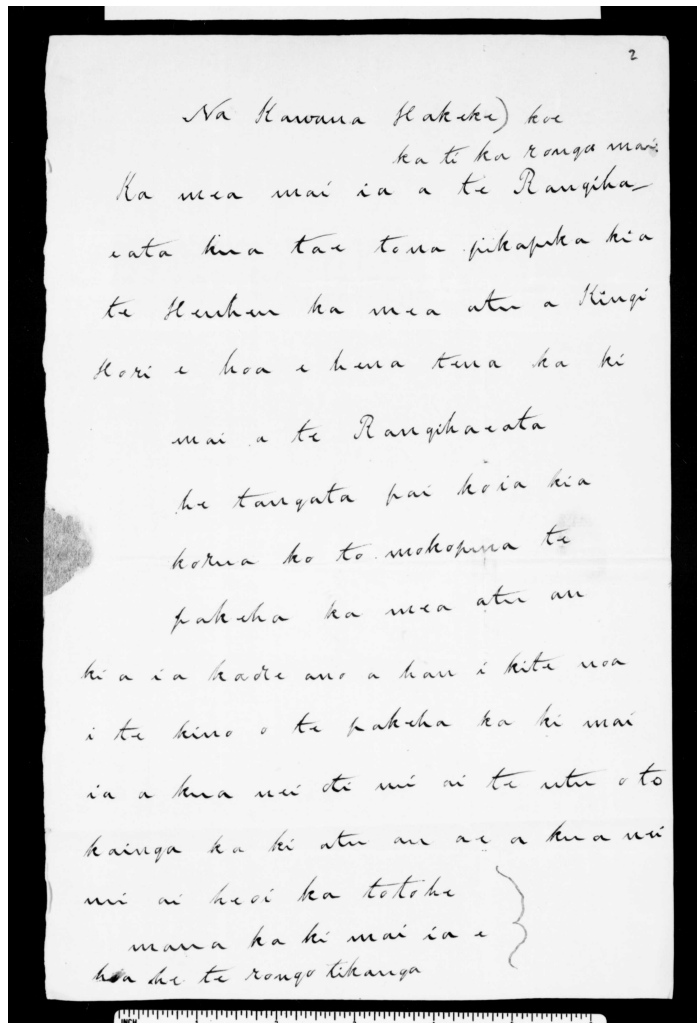 2
Na Kawana Hakeke) koe
ka ti ka rongo mai.
Ka mea mai ia a te Rangiha-
eata kua tae tona pikapika kia
te Heuheu ka mea atu a Kingi
Hori e hoa e hena tena ka ki
mai a te Rangihaeata
he tangata pai koia kia
korua ko to mokopuna te
pakeha ka mea atu au
ki a ia kaore ano a hau i kite noa
i te kino o te pakeha ka ki mai
ia a kua nui oti nui ai te utu o to
kainga ka ki atu au ae a kua nui
nui ai heoi ka totohe
maua ka ki mai ia e
hoa he te rongo tikanga
INCH